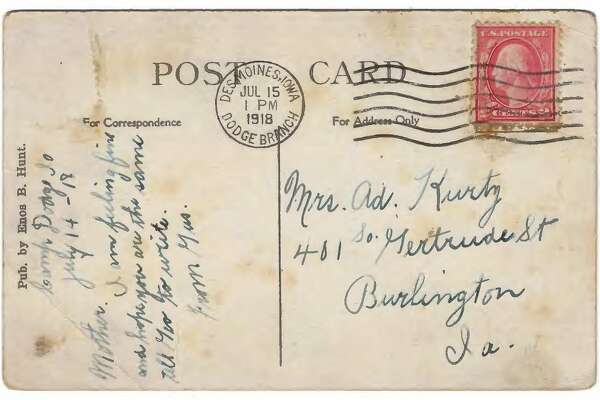 POST CARD
For Correspondence
For Address Only
U.S. POSTAGE
DES MOINES, IOWA
JUL 15
1 PM
1918
DODGE BRANCH
Pub. by Enos B. Hunt.
Camp Dodge Io
July 14 - 18
Mother. I am feeling fine
and hope you are the same
tell to write.
From Gus.
Mrs. Ad. Kurtz
401 So. Gertrude St
Burlington
Ia.